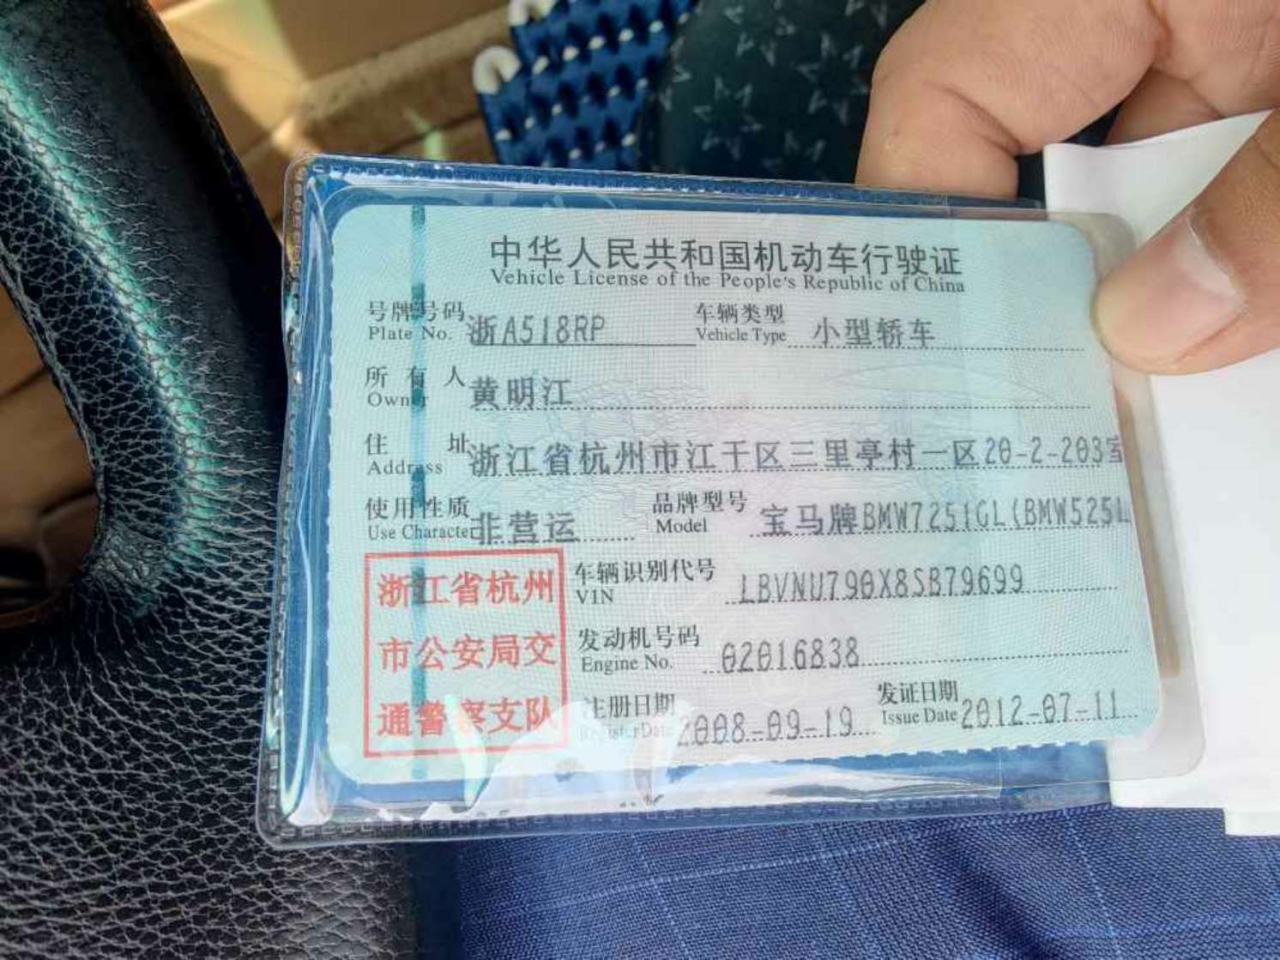 中华人民共和国机动车行驶证
Vehicle License of the People's Republic of China
号牌号码 浙A518RP 车辆类型 小型轿车
Plate No. Vehicle Type
所有人 黄明江
Owner
住址 浙江省杭州市江干区三里亭村一区20-2-203室
Address
使用性质 非营运 品牌型号 宝马牌BMW7251GL(BMW525L
Use Character Model
浙江省杭州
市公安局交
通警察支队
车辆识别代号 LBVNU790X8SB79699
VIN
发动机号码 02016838
Engine No.
注册日期 2008-09-19 发证日期 2012-07-11
Register Date Issue Date